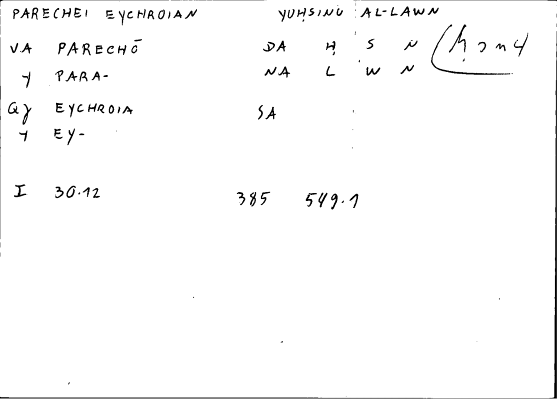 PARECHEI EYCHROIAN YUḤSINU AL-LAWN
VA PARECHŌ DA Ḥ S N
Y PARA- NA L W N
QY EYCHROIA SA
Y EY-
I 30.12 385 549.1